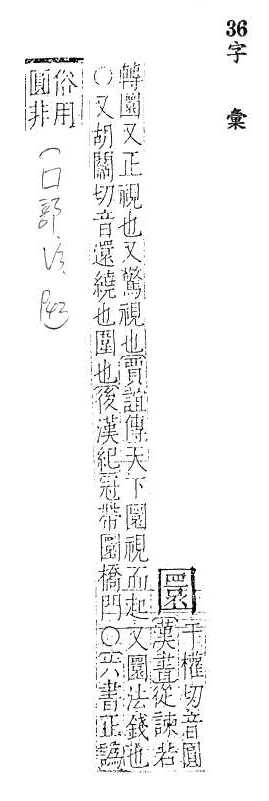 36字彙
圜
于權切音圓
漢書從諫若
轉圜又正視也又驚視也賈誼傳天下圜視而起又圜法錢也
○又胡關切音還繞也圍也後漢紀冠帶圜橋門○六書正譌
俗用
圓非